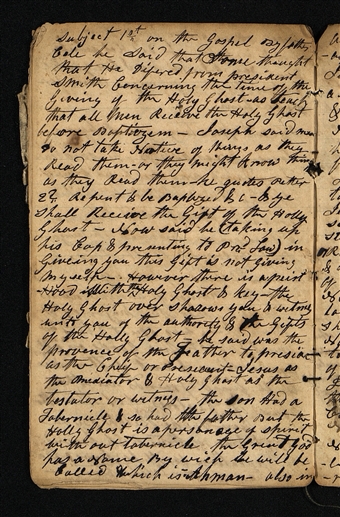 Subject 1st on the Gospel By father
Cole he Said that Some thought
that He Difered from president
Smith Concerning the time of the
Giving of the Holy Ghost - as Such
that all Men Receive the Holy Ghost
before Baptizem - Joseph said men
do not take Notice of things as they
Read them - or they might Know things
as they Read them - he quotes Acts
2ch Repent & be Baptized & c - & ye
Shall Receive the Gift of the Holy
Ghost - Now said he (taking up
his Cap & presenting to Prs Law) in
Giveing you this Gift is not giving
myself - However there is a priest
-Hood with the Holy Ghost & Key - the
Holy Ghost over Shadows you & witness
unto you of the authority & the Gifts
of the Holly Ghost - he said was the
provence of the Father to preside
as the Chief or President - Jesus as
the Mediator & Holy Ghost as the
testator or witness - the Son Had a
Tabernicle & so had the father But the
Holly Ghost is a personage of spirit
without tabernicle the Great God
has a Name By wich he will be
Called Which is Ahman - also in